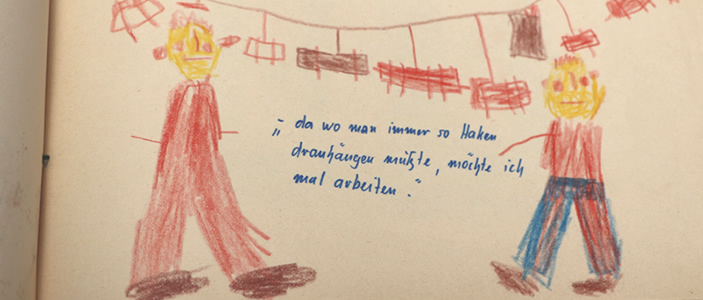 „da wo man immer so Haken
dranhängen müßte, möchte ich
mal arbeiten."